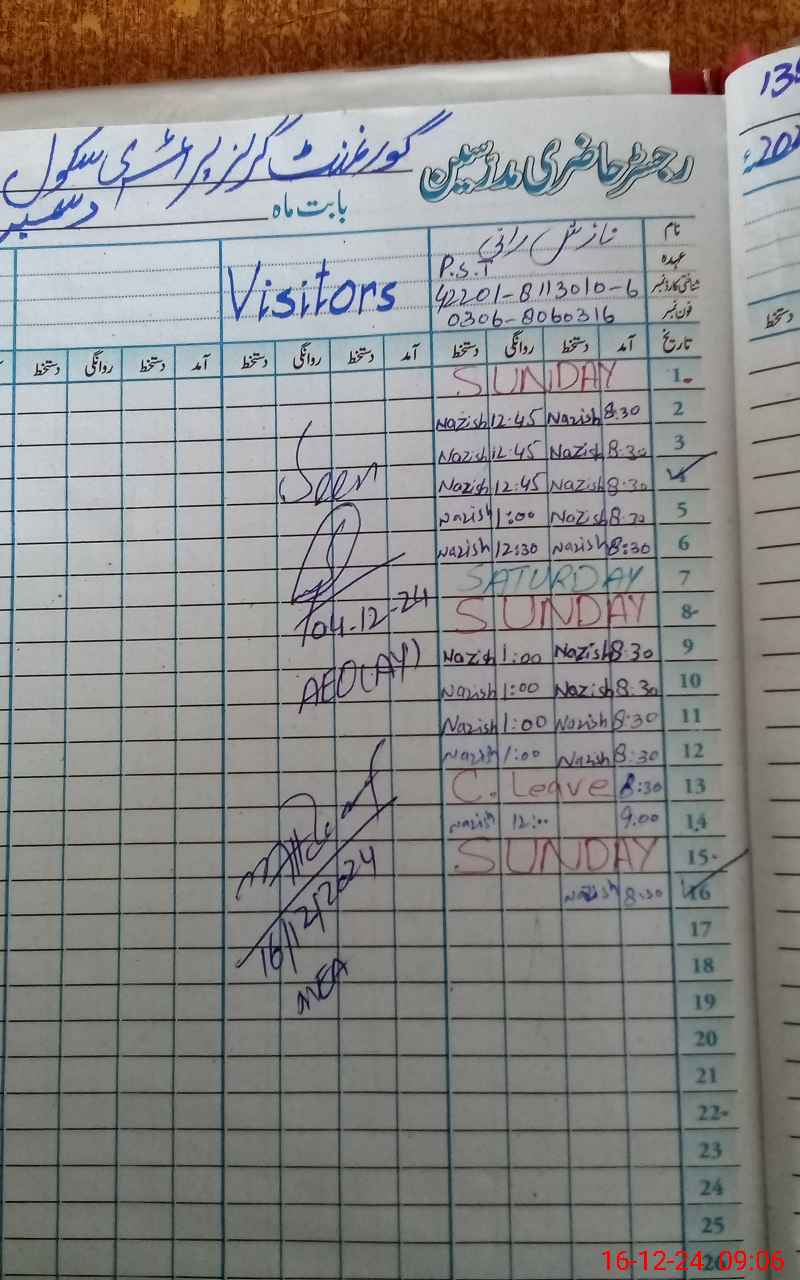 رجسٹر حاضری مدرسین گورنمنٹ گرلز پرائمری سکول
135
بابت ماہ دسمبر
202
نام نازش رانی
عہدہ P.S.T
Visitors
شناختی کارڈ نمبر 42201-8113010-6
فون نمبر 0306-8060316
تاریخ آمد دستخط روانگی دستخط آمد دستخط روانگی دستخط آمد دستخط روانگی دستخط
دستخط
1 SUNDAY
2 8:30 Nazish 12:45 Nazish
3 8:30 Nazish 12:45 Nazish
4 8:30 Nazish 12:45 Nazish
Seen
5 8:30 Nazish 1:00 Nazish
6 8:30 Nazish 12:30 Nazish
7 SATURDAY
8 SUNDAY
04-12-24
9 8:30 Nazish 1:00 Nazish
AEO(AY)
10 8:30 Nazish 1:00 Nazish
11 8:30 Nazish 1:00 Nazish
12 8:30 Nazish 1:00 Nazish
13 8:30 C. Leave
14 9.00 12:00 Nazish
15 SUNDAY
16 8:30 Nazish
16/12/2024
MEA
17
18
19
20
21
22
23
24
25
26
16-12-24 09:06